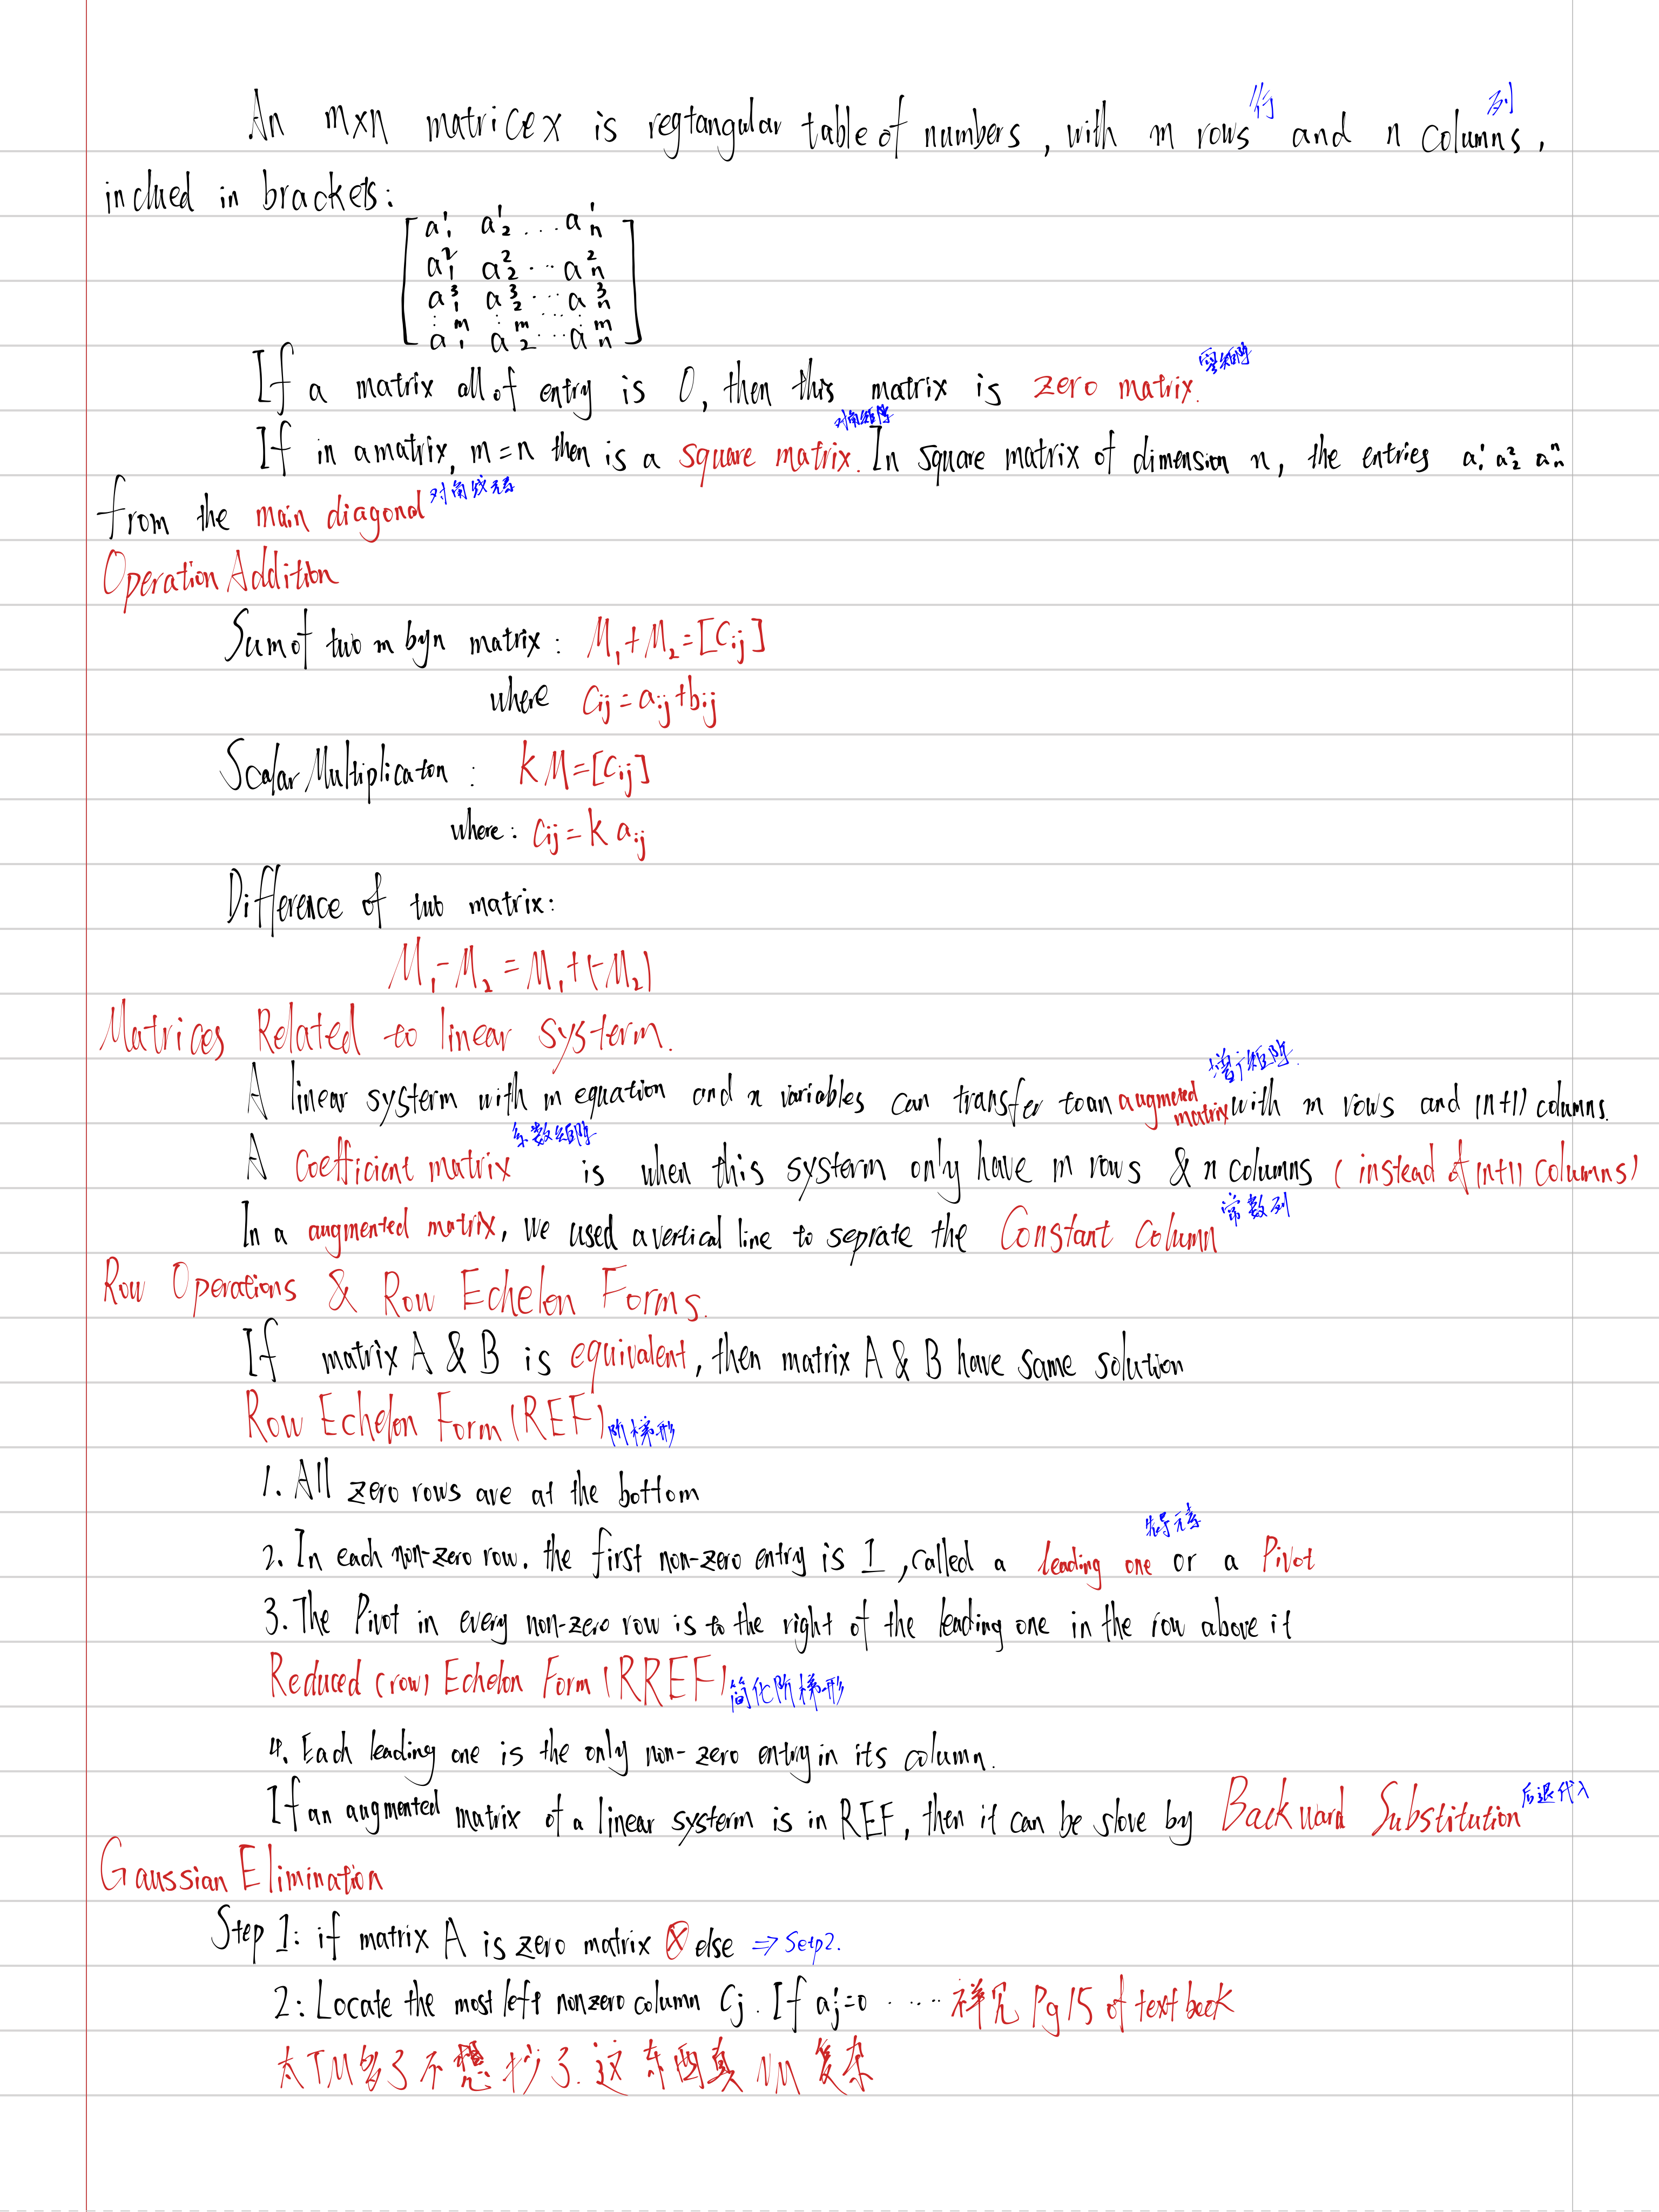 行 列
An m×n matricex is regtangular table of numbers, with m rows and n columns,
inclued in brackets:
a¹₁ a¹₂ ... a¹ₙ
a²₁ a²₂ ... a²ₙ
a³₁ a³₂ ... a³ₙ
⋮ ⋮ ... ⋮
aᵐ₁ aᵐ₂ ... aᵐₙ
零矩阵
If a matrix all of entry is 0, then this matrix is zero matrix.
对角矩阵
If in a matrix, m=n then is a square matrix. In square matrix of dimension n, the entries a¹₁ a²₂ aⁿₙ
对角线元素
from the main diagonal
Operation Addition
Sum of two m by n matrix: M₁+M₂=[Cij]
where Cij=aij+bij
Scalar Multiplicaton: kM=[Cij]
where: Cij=k aij
Difference of two matrix:
M₁-M₂=M₁+(-M₂)
Matrices Related to linear systerm.
增广矩阵
A linear systerm with m equation and n variables can transfer to an augmented matrix with m rows and (n+1) columns.
系数矩阵
A Coefficient matrix is when this systerm only have m rows & n columns (instead of (n+1) columns)
常数列
In a augmented matrix, we used a vertical line to seprate the Constant Column
Row Operations & Row Echelon Forms.
If matrix A & B is equivalent, then matrix A & B have same solution
Row Echelon Form (REF) 阶梯形
1. All zero rows are at the bottom
先导元素
2. In each non-zero row. the first non-zero entry is 1, called a leading one or a Pivot
3. The Pivot in every non-zero row is to the right of the leading one in the row above it
Reduced (row) Echelon Form (RREF) 简化阶梯形
4. Each leading one is the only non-zero entry in its column.
后退代入
If an augmented matrix of a linear systerm is in REF, then it can be slove by Backward Substitution
Gaussian Elimination
Step 1: if matrix A is zero matrix ⊗ else ⇒ Setp2.
2: Locate the most left nonzero column Cj. If a¹j=0 ····· 详见 Pg 15 of text book
太TM多了不想抄了.这东西真NM复杂